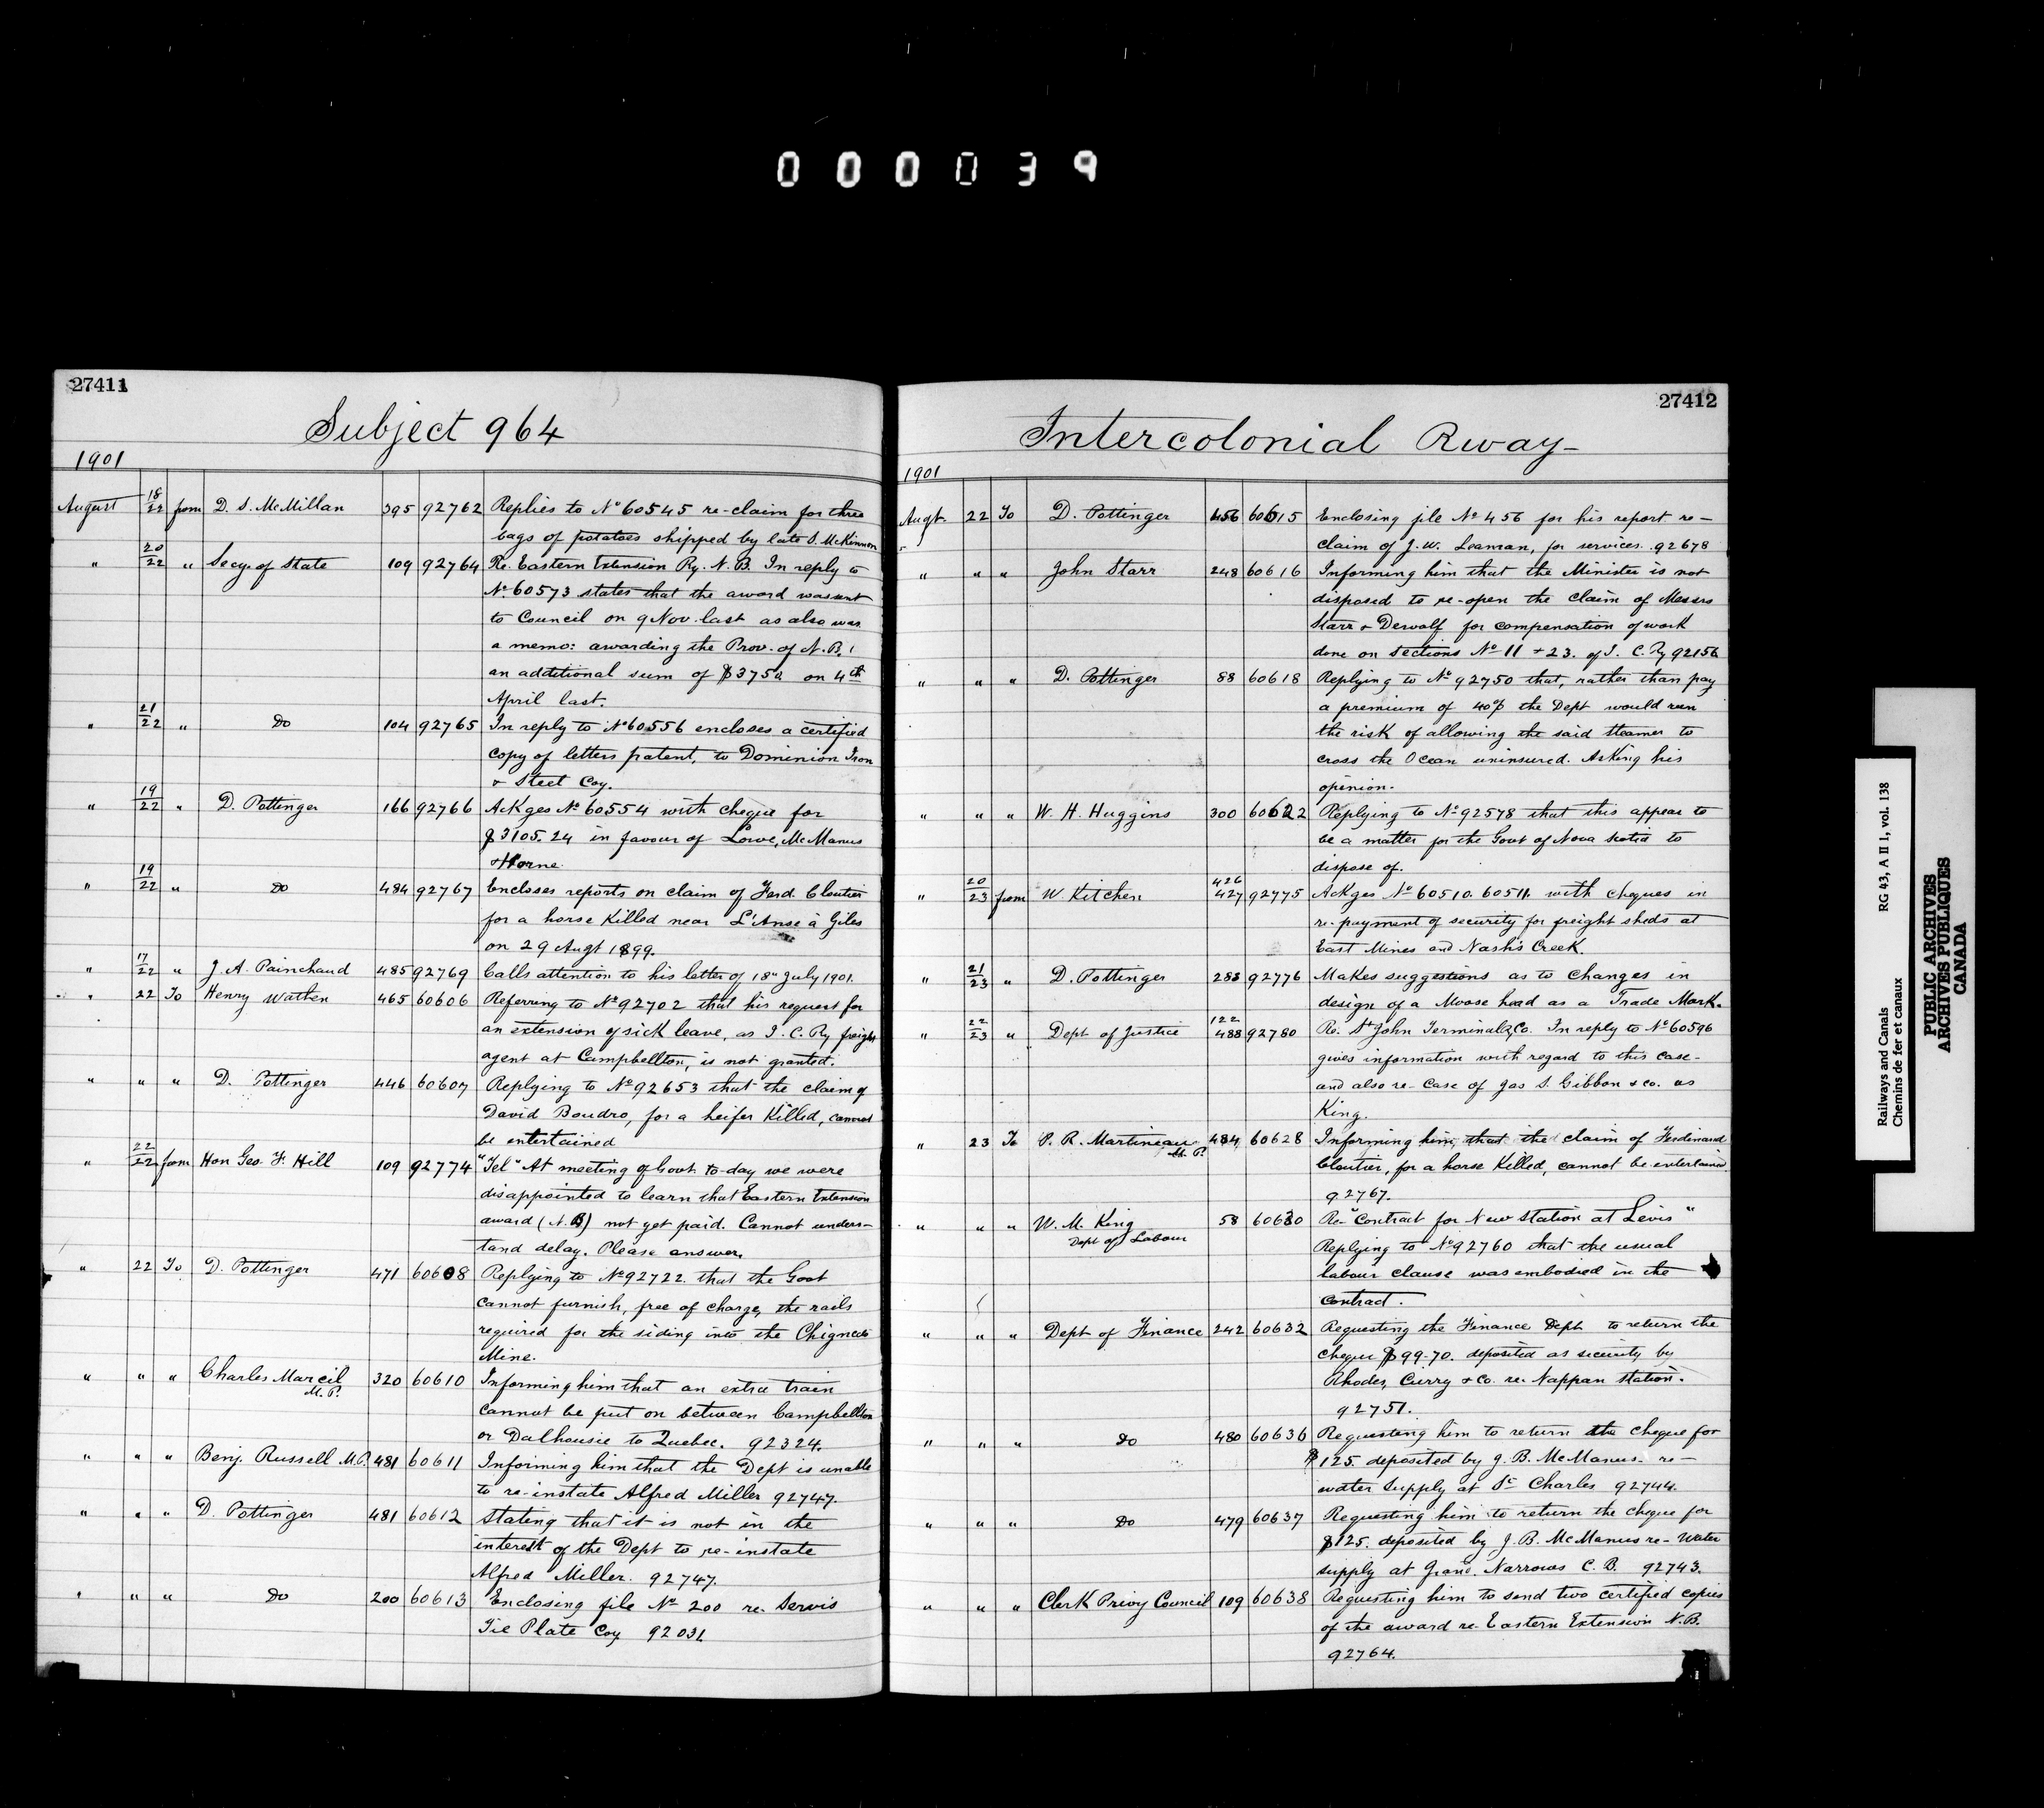 000039
27411
Subject 964
1901
August 18/22 from D. S. McMillan 395 92762 Replies to No 60545 re-claim for three
bags of potatoes shipped by late S. McKinnon
" 20/22 " Secy. of State 109 92764 Re. Eastern Extension Ry. N. B. In reply to
No 60573 states that the award was sent
to Council on 9 Nov. last as also was
a memo: awarding the Prov. of N. B.
an additional sum of $3750 on 4th
April last.
" 21/22 " Do 104 92765 In reply to No 60556 encloses a certified
copy of letters patent, to Dominion Iron
& Steel Coy.
" 19/22 " D. Pottinger 166 92766 Ackges No 60554 with cheque for
$3105.24 in favour of Lowe, McManus
& Horne.
" 19/22 " Do 484 92767 Encloses reports on claim of Ferd. Cloutier
for a horse Killed near L'Anse à Giles
on 29 Augt 1899.
" 17/22 " J. A. Painchaud 485 92769 Calls attention to his letter of 18" July 1901.
" 22 To Henry Wathen 465 60606 Referring to No 92702 that his request for
an extension of sick leave, as I. C. Ry freight
agent at Campbellton, is not granted.
" " " D. Pottinger 446 60607 Replying to No 92653 that the claim of
David Boudro, for a heifer Killed, cannot
be entertained
" 22/22 from Hon Geo. F. Hill 109 92774 "Tel" At meeting of Govt to-day we were
disappointed to learn that Eastern Extension
award (N. B) not yet paid. Cannot unders-
tand delay. Please answer.
" 22 To D. Pottinger 471 60608 Replying to No 92722 that the Govt
cannot furnish, free of charge, the rails
required for the siding into the Chignecto
Mine.
" " " Charles Marcil 320 60610 Informing him that an extra train
M. P.
cannot be put on between Campbellton
or Dalhousie to Quebec. 92324.
" " " Benj. Russell M.P. 481 60611 Informing him that the Dept is unable
to re-instate Alfred Miller 92747.
" " " D. Pottinger 481 60612 Stating that it is not in the
interest of the Dept to re-instate
Alfred Miller. 92747.
" " " Do 200 60613 Enclosing file No 200 re. Servis
Tie Plate Coy 92031
27412
Intercolonial Rway-
1901
Augt. 22 To D. Pottinger 456 60615 Enclosing file No 456 for his report re-
claim of J. W. Leaman, for services. 92678
" " " John Starr 248 60616 Informing him that the Minister is not
disposed to re-open the claim of Messrs
Starr & Dewolf for compensation of work
done on sections No 11 + 23. of I. C. Ry 92156
" " " D. Pottinger 88 60618 Replying to No 92750 that, rather than pay
a premium of 40% the Dept would run
the risk of allowing the said steamer to
cross the Ocean uninsured. Asking his
opinion.
" " " W. H. Huggins 300 60622 Replying to No 92578 that this appear to
be a matter for the Govt of Nova Scotia to
dispose of.
" 20/23 from W. Kitchen 426 427 92775 Ackges No 60510. 60511. with cheques in
re-payment of security for freight sheds at
East Mines and Nash's Creek.
" 21/23 " D. Pottinger 283 92776 Makes suggestions as to changes in
design of a Moose head as a Trade Mark.
" 22/23 " Dept of Justice 122 488 92780 Re. St John Terminal Co. In reply to No 60596
gives information with regard to this case-
and also re-case of Jas S. Gibbon & co. vs
King.
" 23 To P. R. Martineau 484 60628 Informing him, that the claim of Ferdinand
M. P.
Cloutier, for a horse Killed, cannot be entertained.
92767.
" " " W. M. King 58 60630 Re- "Contract for New Station at Levis"
Dept of Labour
Replying to No 92760 that the usual
labour clause was embodied in the
contract.
" " " Dept of Finance 242 60632 Requesting the Finance Dept to return the
cheque $99-70. deposited as security by
Rhodes, Curry & Co. re. Nappan Station.
92751.
" " " Do 480 60636 Requesting him to return the cheque for
$125. deposited by J. B. McManus. re-
water supply at St Charles 92744.
" " " Do 479 60637 Requesting him to return the cheque for
$125. deposited by J. B. McManus re- Water
supply at Grand. Narrows C. B. 92743.
" " " Clerk Privy Council 109 60638 Requesting him to send two certified copies
of the award re. Eastern Extension N.B.
92764.
Railways and Canals RG 43, A II 1, vol. 138
Chemins de fer et canaux
PUBLIC ARCHIVES
ARCHIVES PUBLIQUES
CANADA